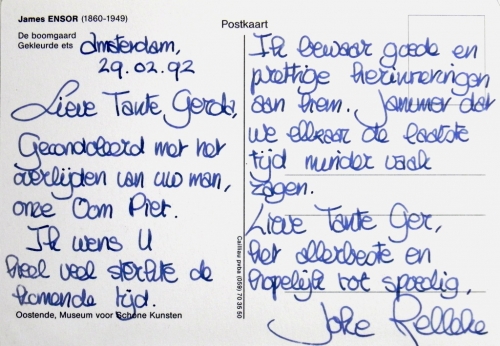 James ENSOR (1860-1949)
De boomgaard
Gekleurde ets
Amsterdam,
29.02.92
Lieve Tante Gerda,
Gecondoleerd met het
overlijden van uw man,
onze Oom Piet.
Ik wens U
heel veel sterkte de
komende tijd.
Oostende, Museum voor Schone Kunsten
Postkaart
Ik bewaar goede en
prettige herinneringen
aan hem. Jammer dat
we elkaar de laatste
tijd minder vaak
zagen.
Lieve Tante Ger,
het allerbeste en
hopelijk tot spoedig,
Joke
(059) 70 35 50